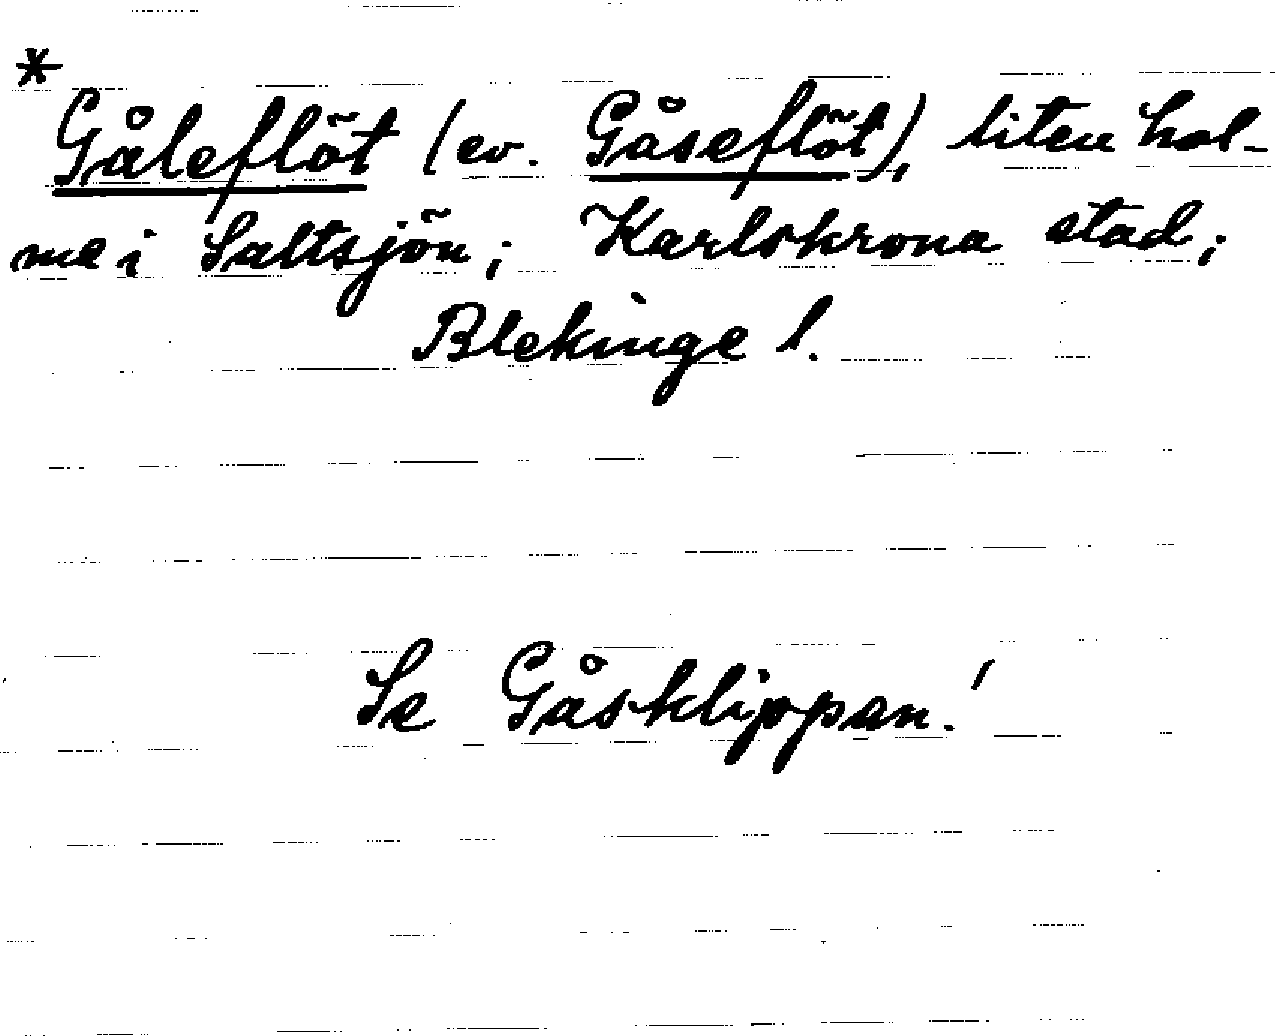 *
Gåleflöt (ev. Gåseflöt), liten hol-
me i Saltsjön; Karlskrona stad;
Blekinge l.
Se Gåsklippan!